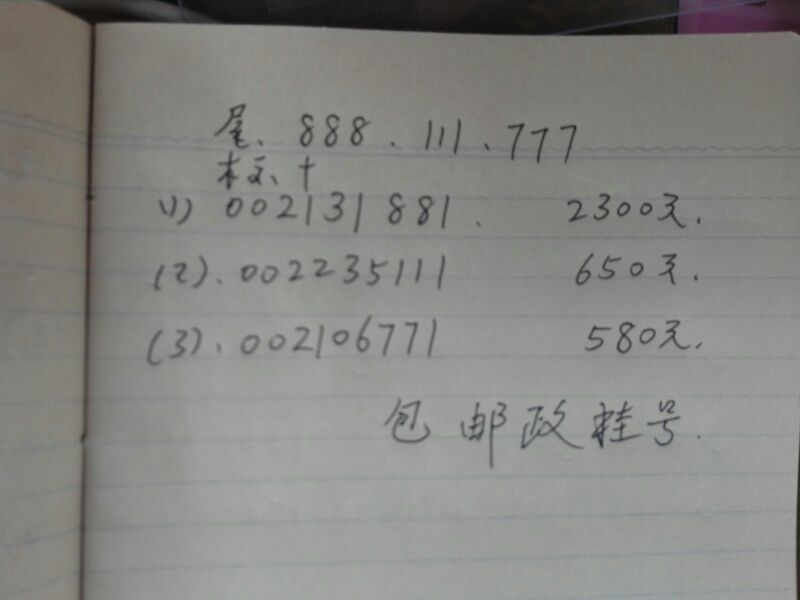 尾、888.111、777
标、十
(1) 002131881. 2300元.
(2).002235111 650元.
(3).002106771 580元.
包邮政挂号.